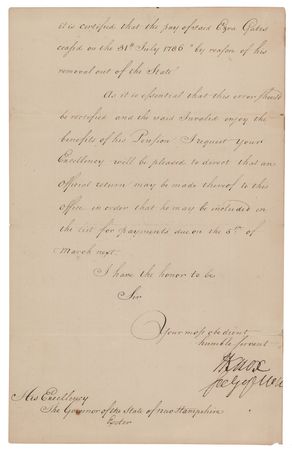 it is certified that the pay of said Ezra Gates
ceased on the 31st July 1786 "by reason of his
removal out of the State"
As it is essential that this error should
be rectified and the said Invalid enjoy the
benefits of his Pension I request your
Excellency will be pleased to direct that an
Official return may be made thereof to this
Office in order that he may be included in
the list for payments due on the 5th of
March next.
I have the honor to be
Sir
Your most obedient
humble servant
HKnox
Secy of War
His Excellency
The Governor of the State of New Hampshire
Exeter